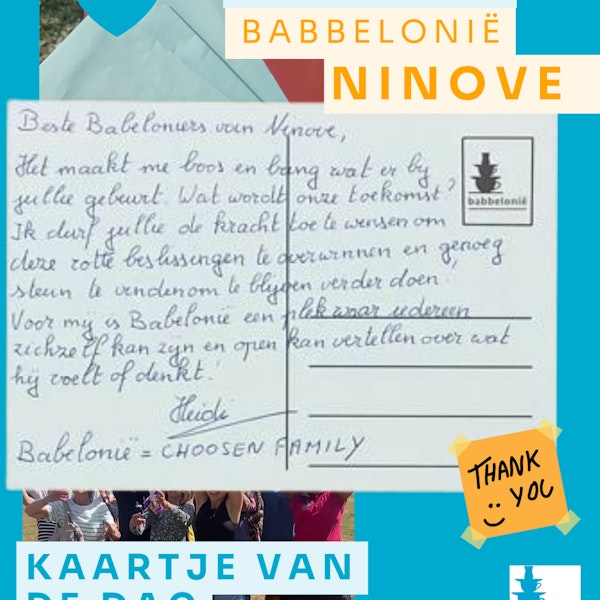 BABBELONIË
NINOVE
Beste Babeloniers van Ninove,
Het maakt me boos en bang wat er bij
jullie gebeurt. Wat wordt onze toekomst?
Ik durf jullie de kracht toe te wensen om
deze rotte beslissingen te overwinnen en genoeg
steun te vinden om te blijven verder doen.
Voor mij is Babelonië een plek waar iedereen
zichzelf kan zijn en open kan vertellen over wat
hij voelt of denkt!
Heidi
Babelonië = CHOOSEN FAMILY
babbelonië
THANK
YOU
KAARTJE VAN
DE DAG